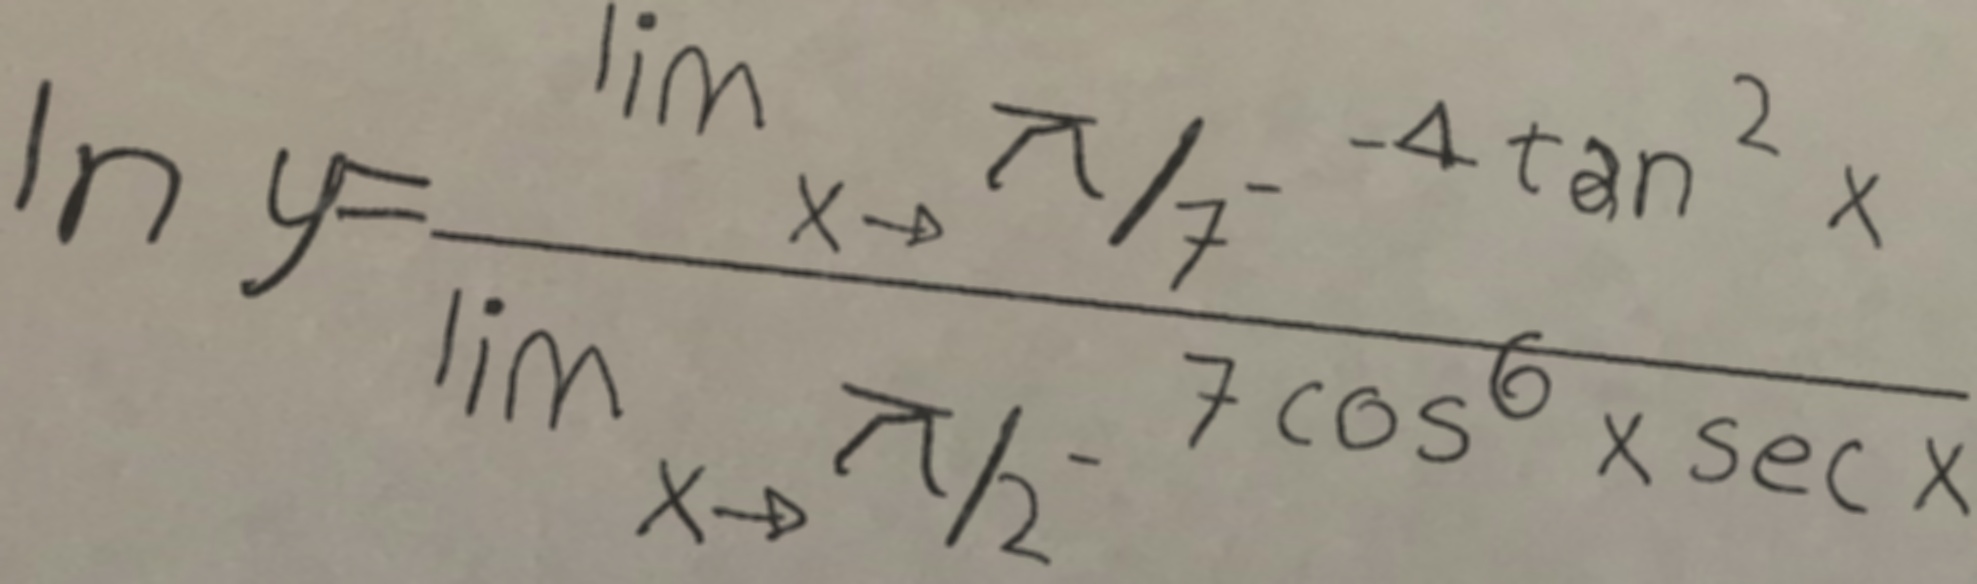 ln y = \frac{\lim_{x \to \pi/7^-} -4 \tan^2 x}{\lim_{x \to \pi/2^-} 7 \cos^6 x \sec x}